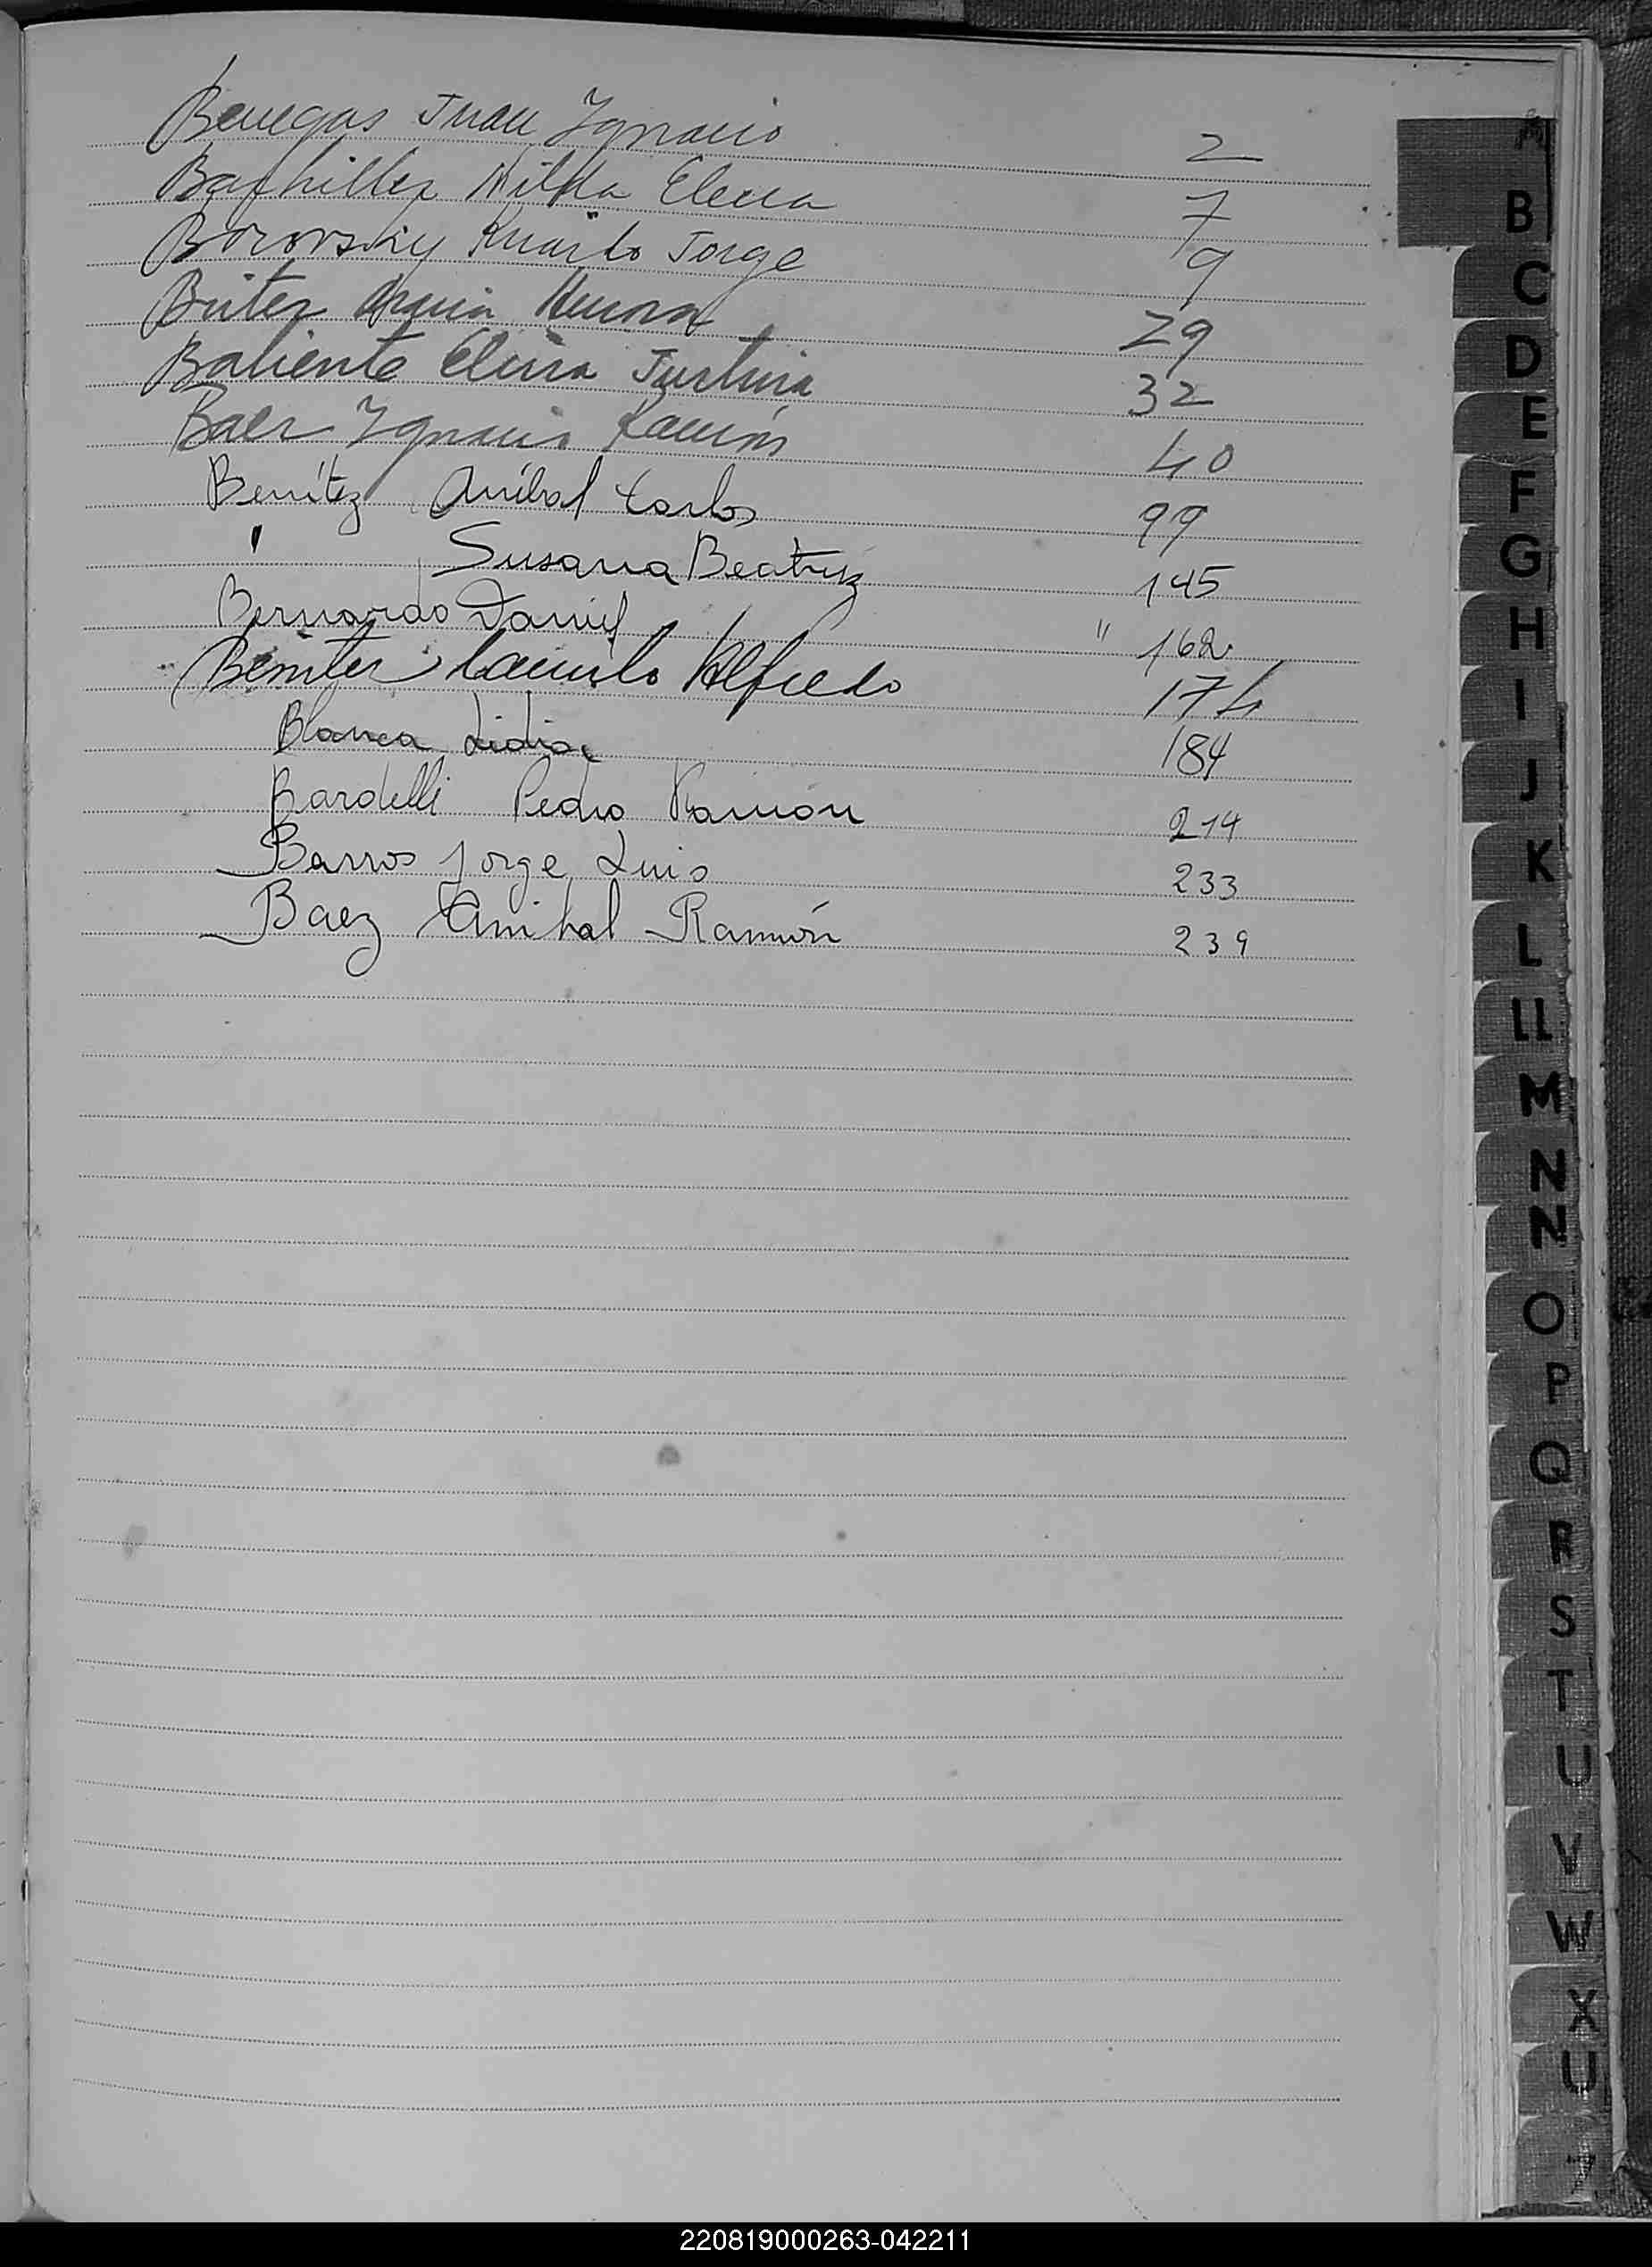 Benegas Juan Ignacio 2
Hilda Elena 7
Borovsky Jorge 9
29
Baliente Elena Justina 32
Baez Ignacio Ramón 40
Benítez Aníbal Carlos 99
" Susana Beatriz 145
Bernardo Daniel " 162
Benitez Camilo Alfredo 174
Blanca Lidia 184
Bardelli Pedro Ramón 214
Barros Jorge Luis 233
Baez Anibal Ramón 239
A
B
C
D
E
F
G
H
I
J
K
L
Ll
M
N
N
O
P
Q
R
S
T
U
V
W
X
U
220819000263-042211